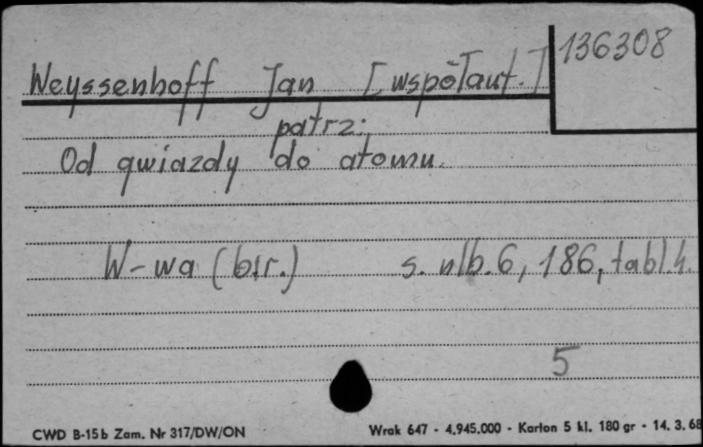 136308
Weyssenhoff Jan [współaut.]
patrz:
Od gwiazdy do atomu.
W-wa (b.r.) s. nlb. 6, 186, tabl. 4.
5
CWD B-15b Zam. Nr 317/DW/ON Wrak 647 - 4.945.000 - Karton 5 kl. 180 gr - 14. 3. 68